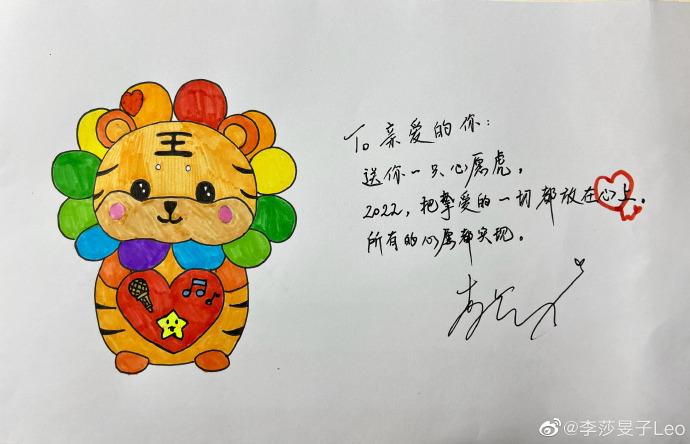 王
To 亲爱的你：
送你一只心愿虎，
2022，把挚爱的一切都放在心上。
所有的心愿都实现。
@李莎旻子Leo